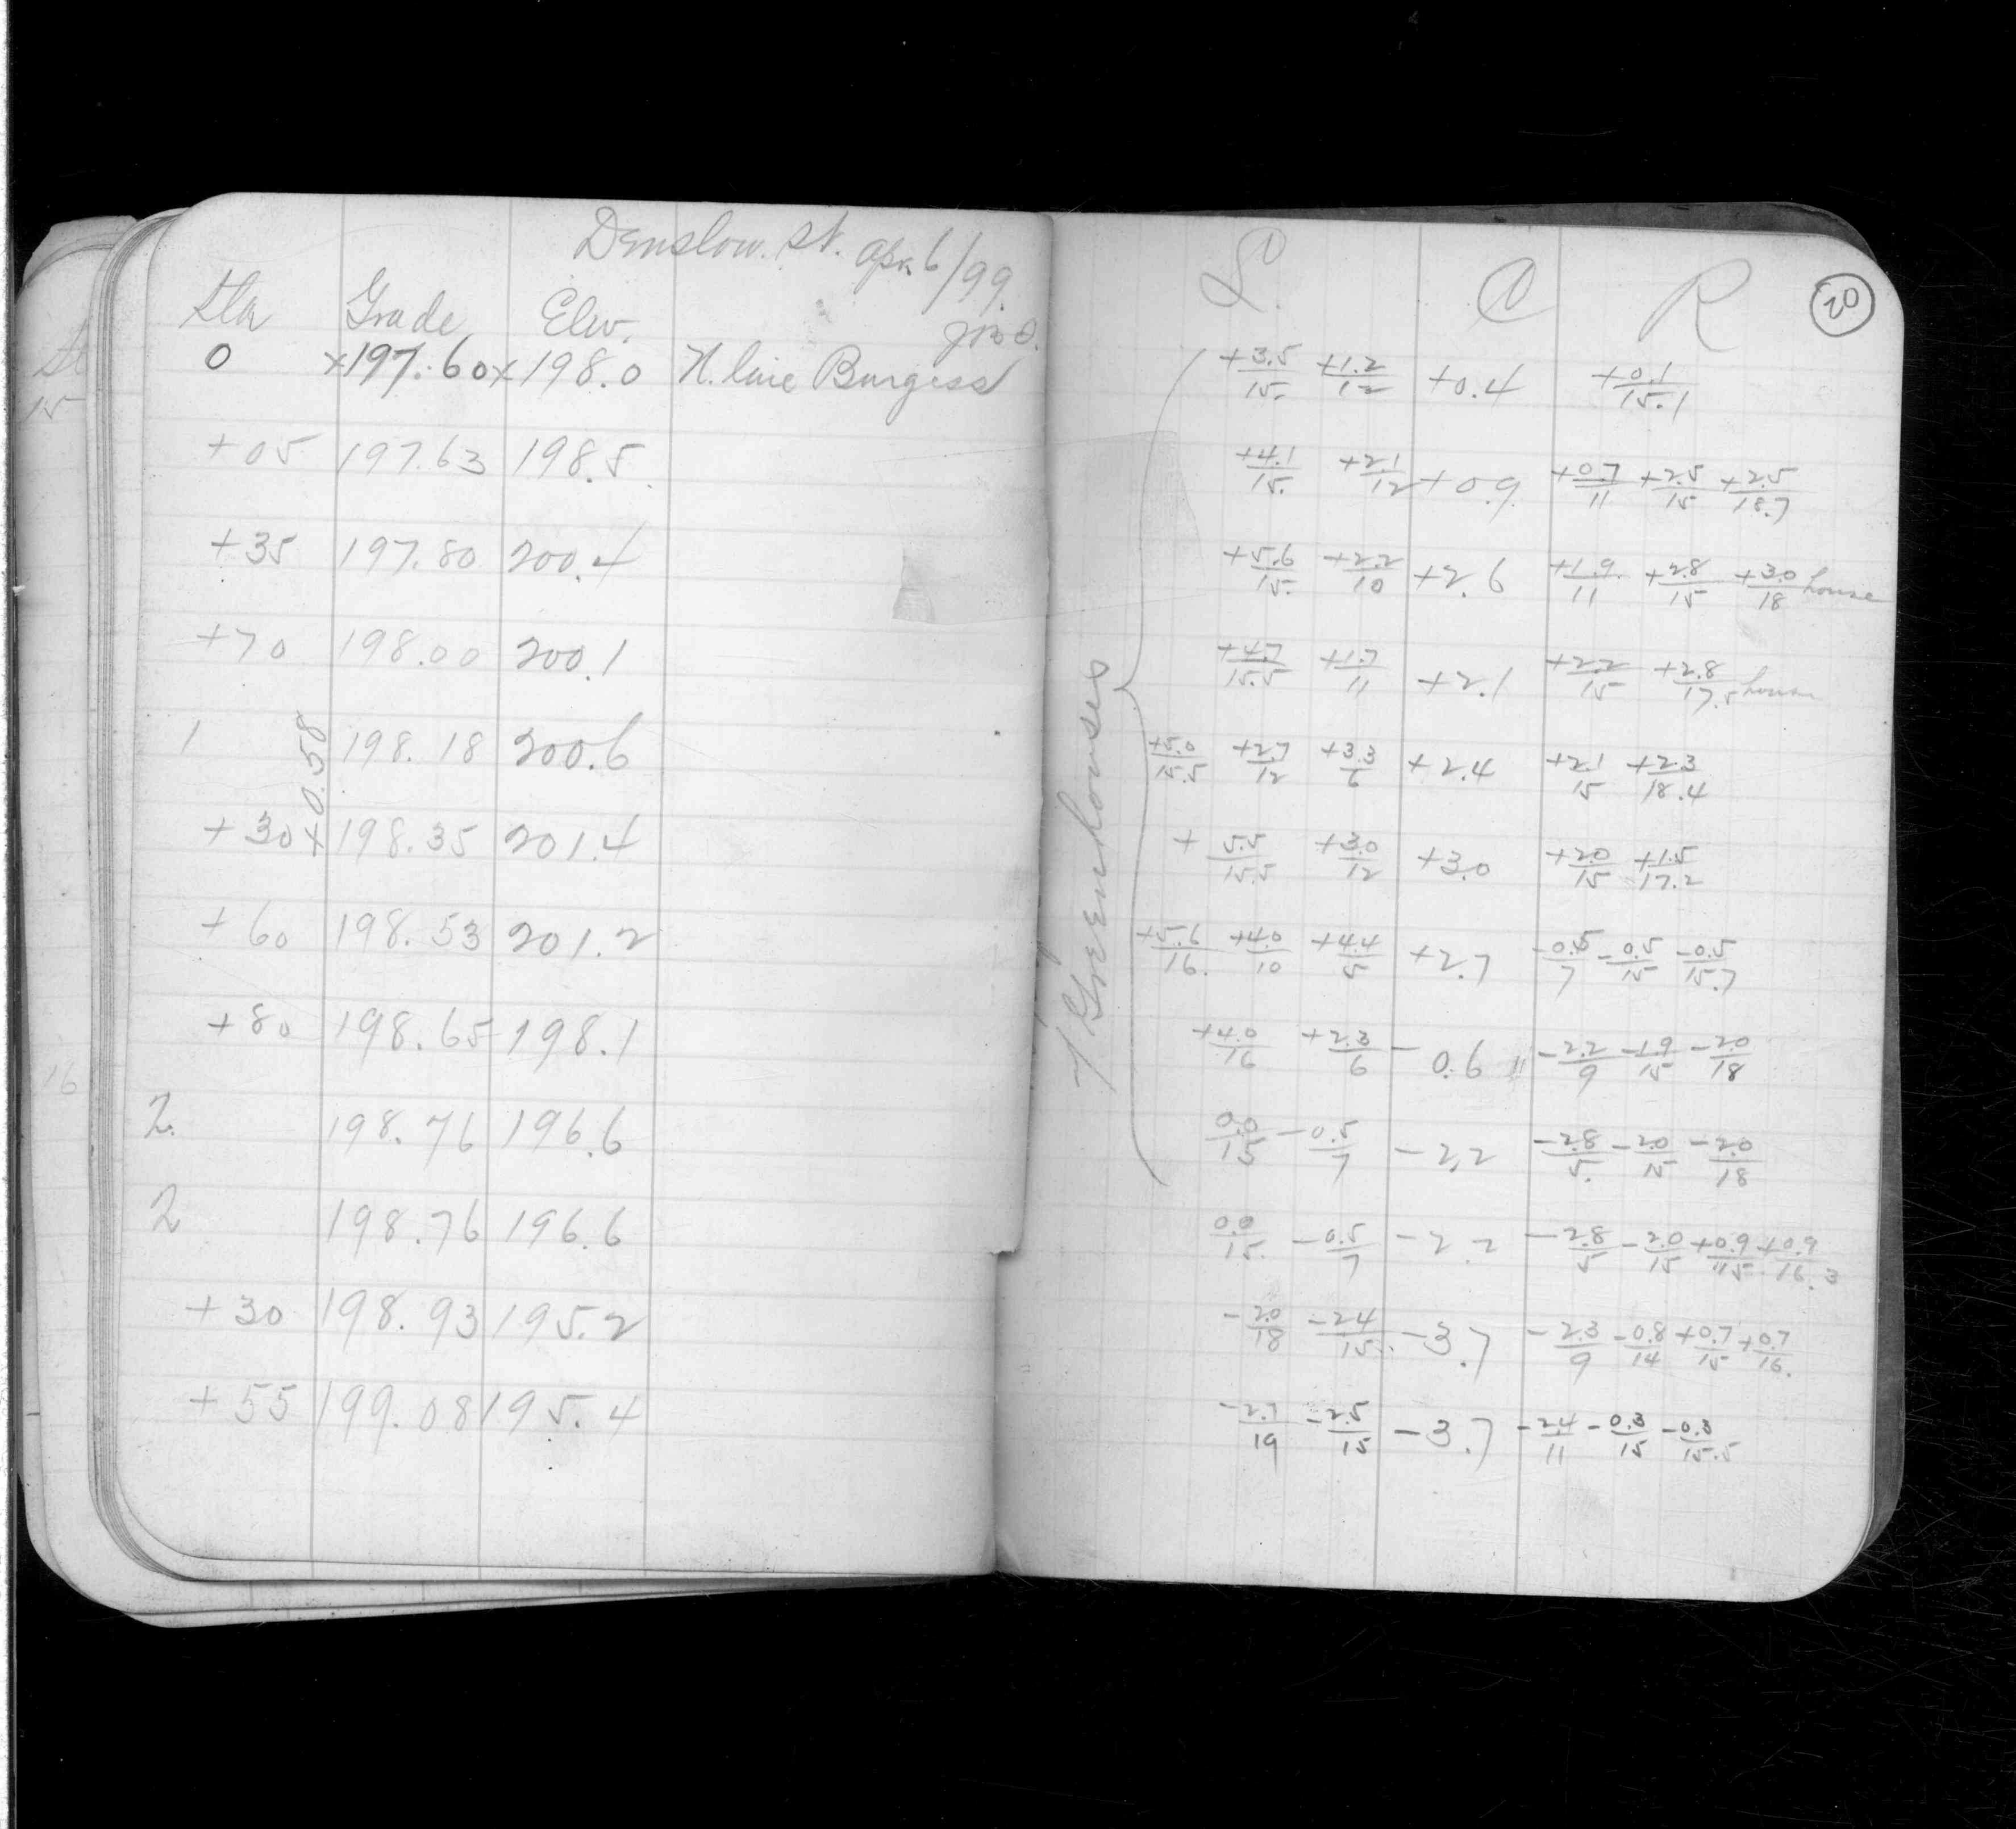 Denslow St. Apr. 6/99.
Sta Grade Elev.
0 x197.60 x198.0 N. line Burgess
+05 197.63 198.5
+35 197.80 200.4
+70 198.00 200.1
1 198.18 200.6
+0.58
+30 198.35 201.4
+60 198.53 201.2
+80 198.65 198.1
2. 198.76 196.6
2 198.76 196.6
+30 198.93 195.2
+55 199.08 195.4
L C R 20
+3.5/15. +1.2/12 +0.4 +0.1/15.1
+4.1/15. +2.1/12 +0.9 +0.7/11 +2.5/15 +2.5/18.7
+5.6/15. +2.2/10 +2.6 +1.9/11 +2.8/15 +3.0/18 house
+4.7/15.5 +1.7/11 +2.1 +2.2/15 +2.8/17.5 house
+5.0/15.5 +2.7/12 +3.3/6 +2.4 +2.1/15 +2.3/18.4
+5.5/15.5 +3.0/12 +3.0 +2.0/15 +1.5/17.2
+5.6/16. +4.0/10 +4.4/5 +2.7 -0.5/7 -0.5/15 -0.5/15.7
+4.0/16 +2.3/6 -0.6 -2.2/9 -1.9/15 -2.0/18
0.0/15 -0.5/7 -2.2 -2.8/5. -2.0/15 -2.0/18
0.0/15. -0.5/7 -2.2 -2.8/5 -2.0/15 +0.9/15 +0.9/16.3
-2.0/18 -2.4/15. -3.7 -2.3/9 -0.8/14 +0.7/15 +0.7/16.
-2.7/19 -2.5/15 -3.7 -2.4/11 -0.3/15 -0.3/15.5
7 Greenhouses